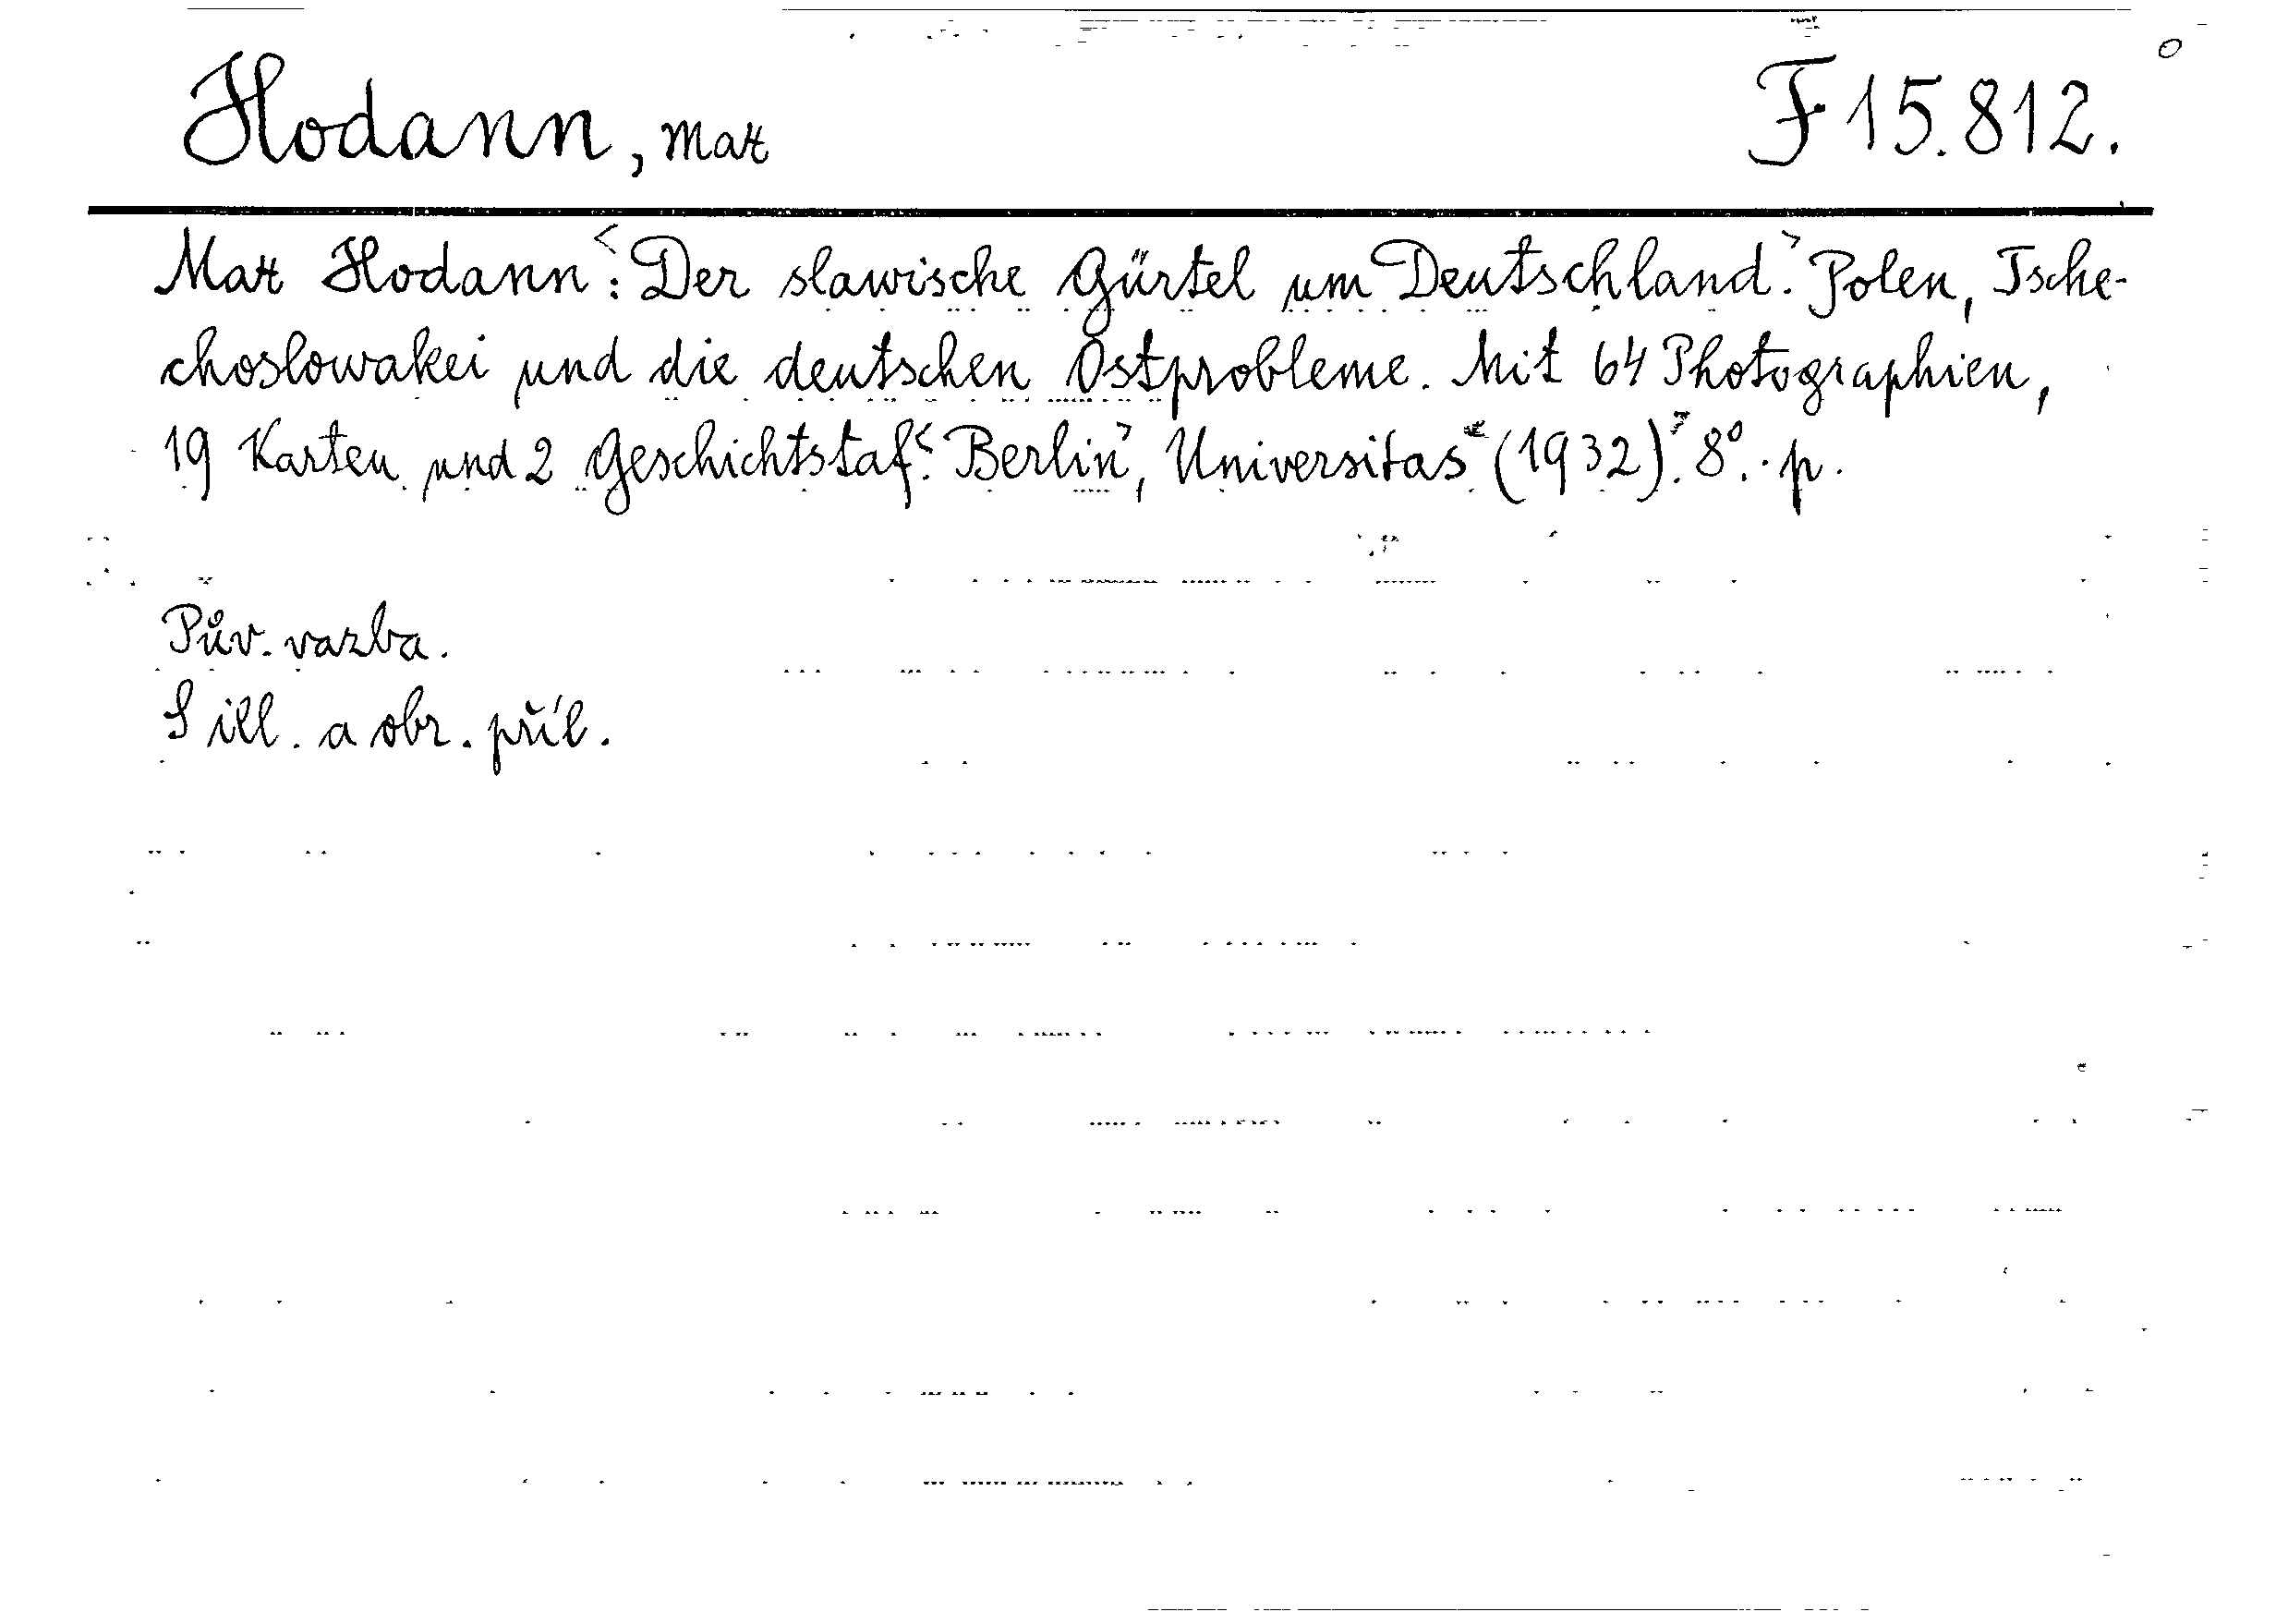 Hodann, Max F 15.812.
Max Hodann<: Der slawische Gürtel um Deutschland.> Polen, Tsche-
choslowakei und die deutschen Ostprobleme. Mit 64 Photographien,
19 Karten und 2 Geschichtstaf.< Berlin>, Universitas <(1932).> 8°. p.
Pův. vazba.
S ill. a obr. příl.